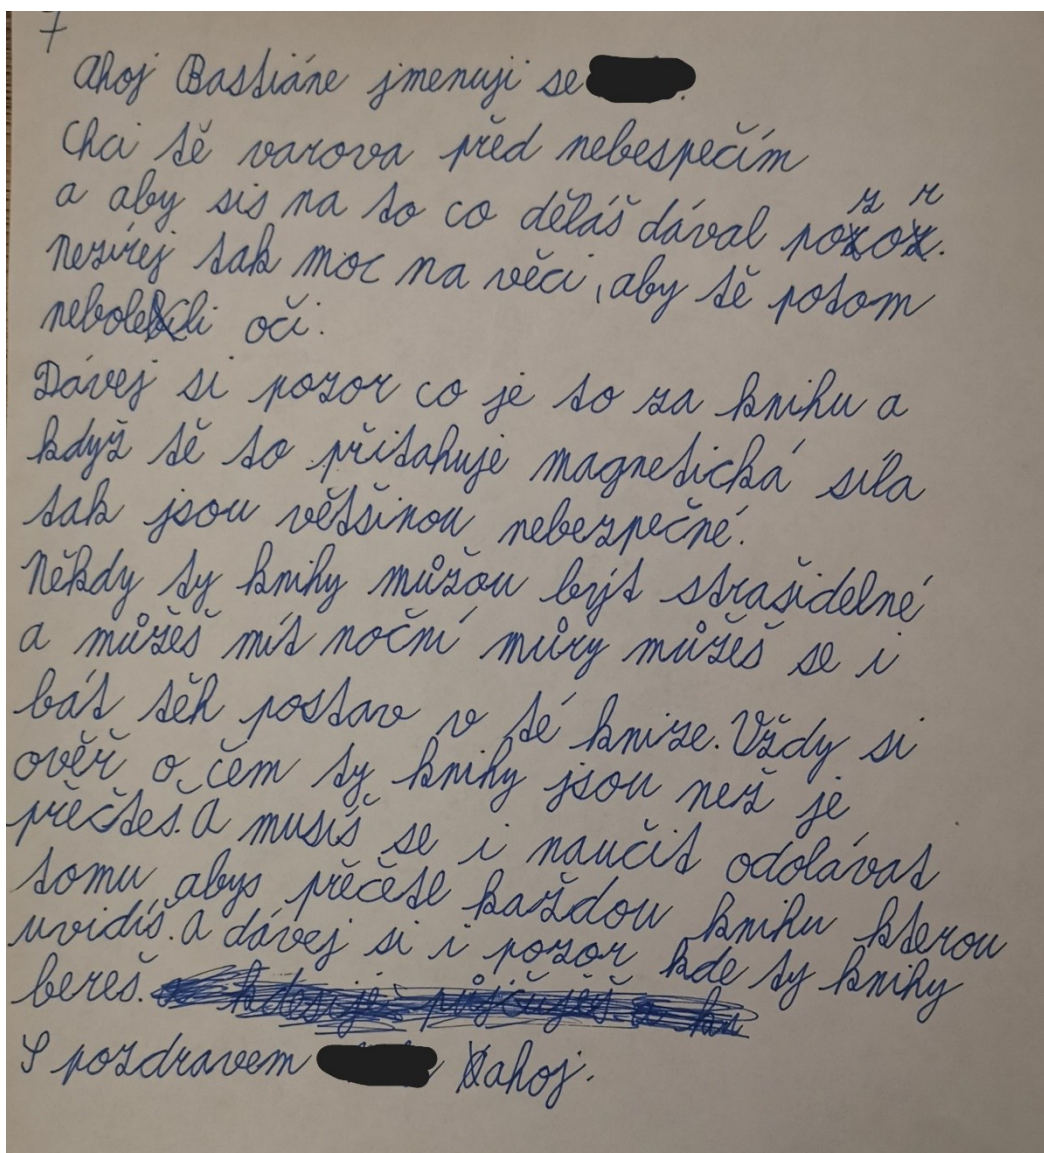 7
Ahoj Bastiáne jmenuji se
Chci tě varova před nebespečím
a aby sis na to co děláš dával pozor.
Nezírej tak moc na věci, aby tě potom
neboleli oči.
Dávej si pozor co je to za knihu a
když tě to přitahuje magnetická síla
tak jsou většinou nebezpečné.
Někdy ty knihy můžou být strašidelné
a můžeš mít noční můry můžeš se i
bát těh postav v té knize. Vždy si
ověř o čem ty knihy jsou než je
přečteš. A musíš se i naučit odolávat
tomu abys přečetl každou knihu kterou
uvidíš. A dávej si i pozor kde ty knihy
bereš.
S pozdravem ahoj.